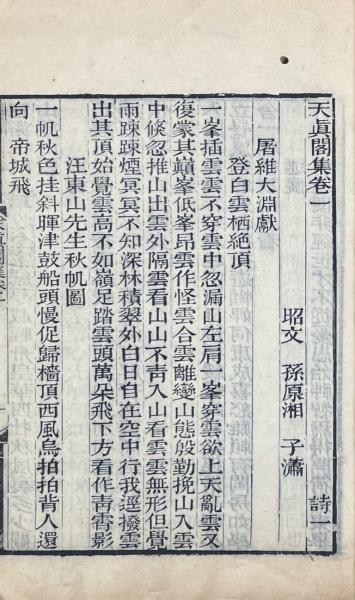 天真閣集卷一
昭文 孫原湘 子瀟 詩一
屠維大淵獻
登白雲栖絶頂
一峯插雲雲不穿雲中忽漏山左肩一峯穿雲欲上天亂雲又
復蒙其巔峯低峯昂雲作怪雲合雲離變山態殷勤挽山入雲
中倏忽推山出雲外隔雲看山山不靑入山看雲雲無形但覺
雨踈踈煙冥冥不知深林積翠外白日自在空中行我逕撥雲
出其頂始覺雲高不如嶺足踏雲頭萬朵飛下方看作靑霄影
汪東山先生秋帆圖
一帆秋色挂斜暉津鼓船頭慢促歸檣頂西風烏拍拍背人還
向 帝城飛